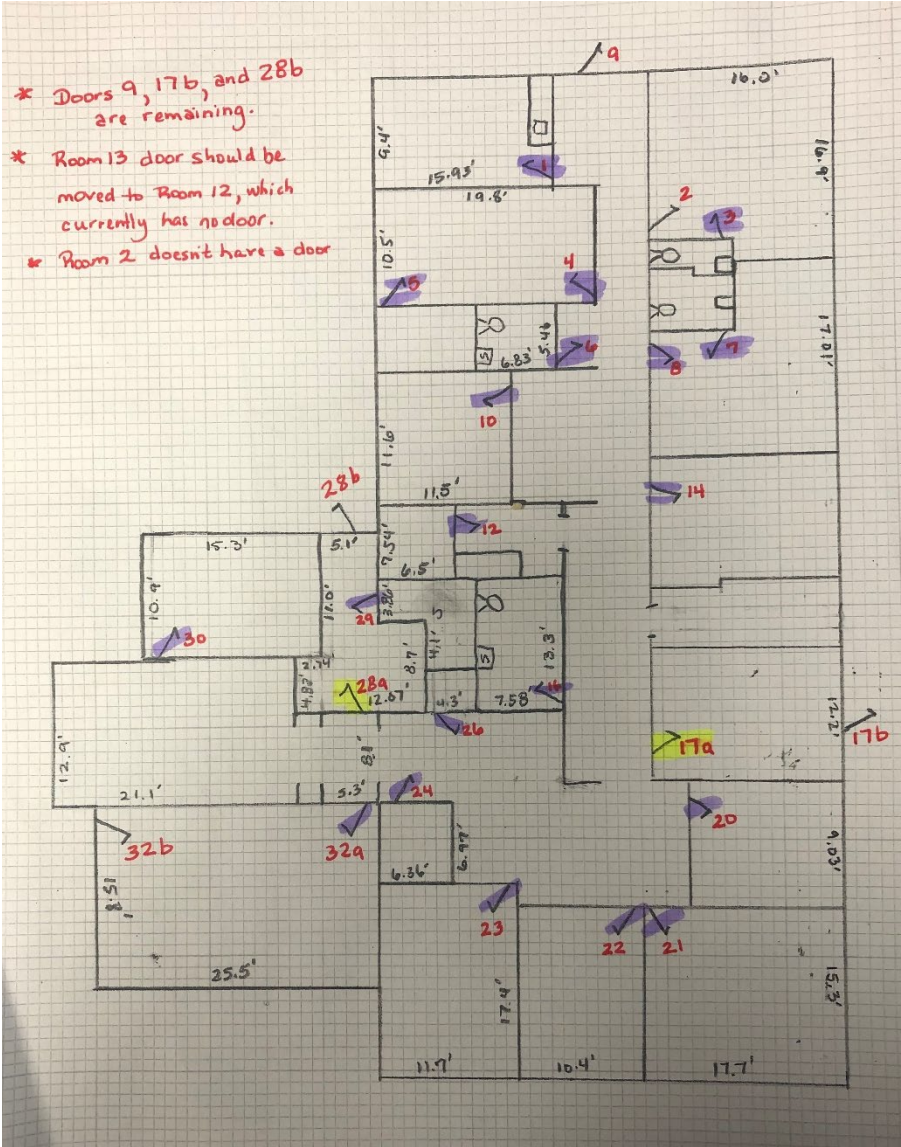 * Doors 9, 17b, and 28b
are remaining.
* Room 13 door should be
moved to Room 12, which
currently has no door.
* Room 2 doesn't have a door
9
16.0'
9.4'
16.9'
1
15.93'
19.8'
2
3
10.5'
4
5
17.01'
5.46
6
6.83'
7
8
10
11.6'
11.5'
28b
14
12
15.3'
5.1'
7.54'
6.5'
10.9'
12.0'
3.86'
29
S
4.1'
13.3'
30
8.7'
S
2.74'
4.82'
28a
12.67'
4.3'
7.58'
26
12.2'
17b
17a
12.9'
8.1'
21.1'
5.3'
24
20
32b
32a
6.97'
9.03'
6.36'
23
22
21
25.5'
17.4'
15.3'
11.7'
10.4'
17.7'